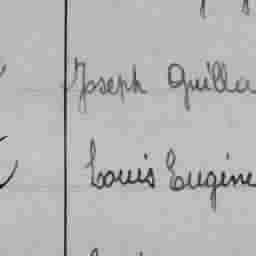 Joseph Quilla
Louis Eugène